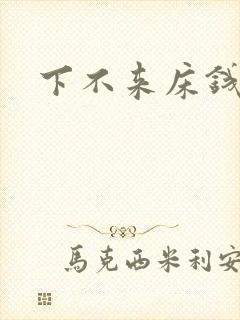 下不来床钱
馬克西米利安